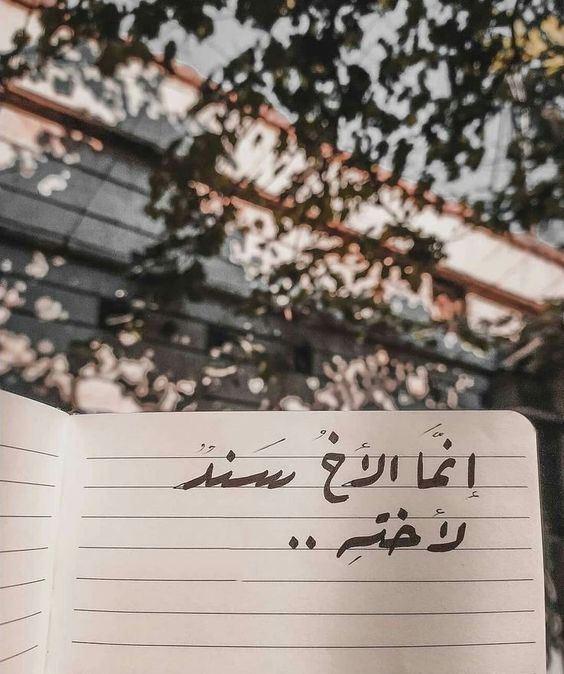 إنَّمَا الأخُ سَندٌ
لأختهِ ..